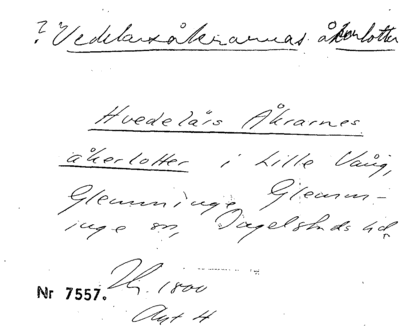 ? Vedelarsåkrarnas åkerlotter
Hvedelårs Åkrarnes
åkerlotter i Lille Vång,
Glemminge, Glemm-
inge sn, Ingelstads hd.
Nr 7557. 1800
Akt 4